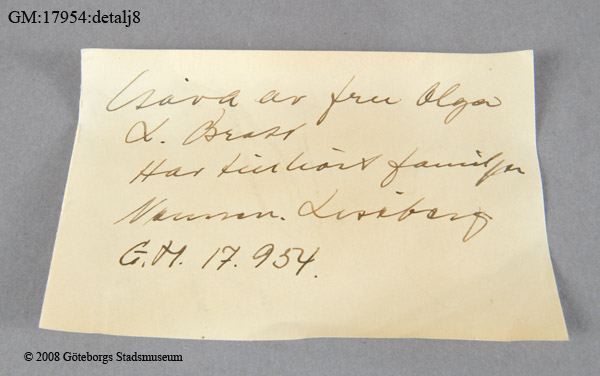 GM:17954:detalj8
Gåva av fru Olga
L. Bratt
Har tillhört familjen
Nonnen. Liseberg
G.M. 17.954.
© 2008 Göteborgs Stadsmuseum